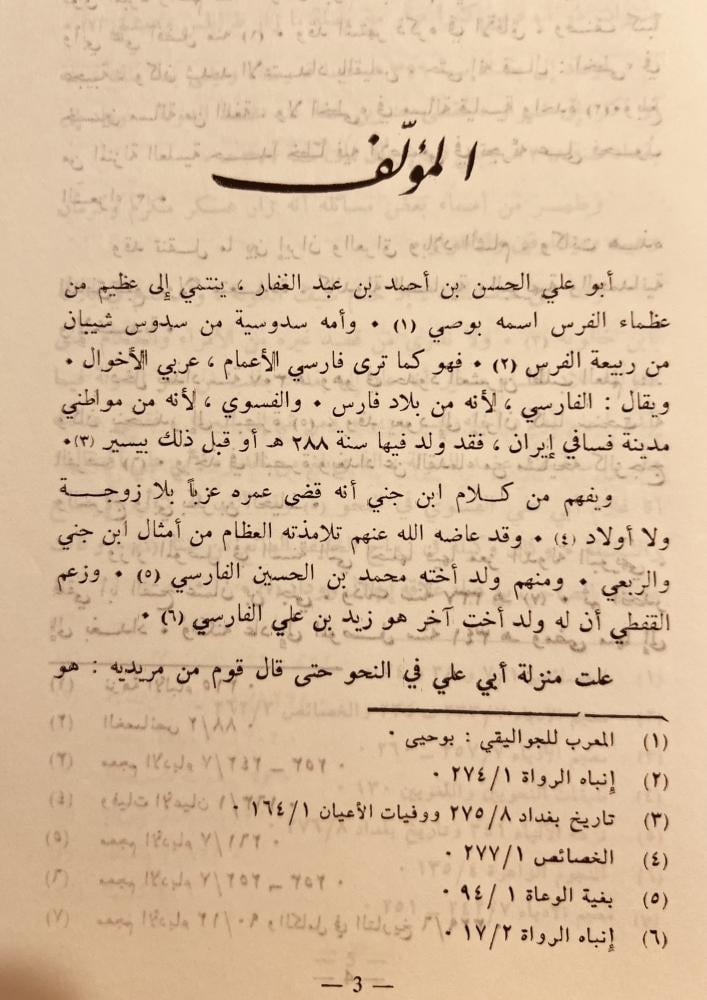 المؤلّف
أبو علي الحسن بن أحمد بن عبد الغفار ، ينتمي إلى عظيم من
عظماء الفرس اسمه بوصي (١) ٠ وأمه سدوسية من سدوس شيبان
من ربيعة الفرس (٢) ٠ فهو كما ترى فارسي الأعمام ، عربي الأخوال ٠
ويقال : الفارسي ، لأنه من بلاد فارس ٠ والفسوي ، لأنه من مواطني
مدينة فسا في إيران ، فقد ولد فيها سنة ٢٨٨ هـ أو قبل ذلك بيسير (٣)٠
ويفهم من كلام ابن جني أنه قضى عمره عزباً بلا زوجة
ولا أولاد (٤) ٠ وقد عاضه الله عنهم تلامذته العظام من أمثال ابن جني
والربعي ٠ ومنهم ولد أخته محمد بن الحسين الفارسي (٥) ٠ وزعم
القفطي أن له ولد أخت آخر هو زيد بن علي الفارسي (٦) ٠
علت منزلة أبي علي في النحو حتى قال قوم من مريديه : هو
(١) المعرب للجواليقي : بوحيى ٠
(٢) إنباه الرواة ٢٧٤/١ ٠
(٣) تاريخ بغداد ٢٧٥/٨ ووفيات الأعيان ١٦٤/١ ٠
(٤) الخصائص ٢٧٧/١ ٠
(٥) بغية الوعاة ٩٤/١ ٠
(٦) إنباه الرواة ١٧/٢ ٠
— 3 —